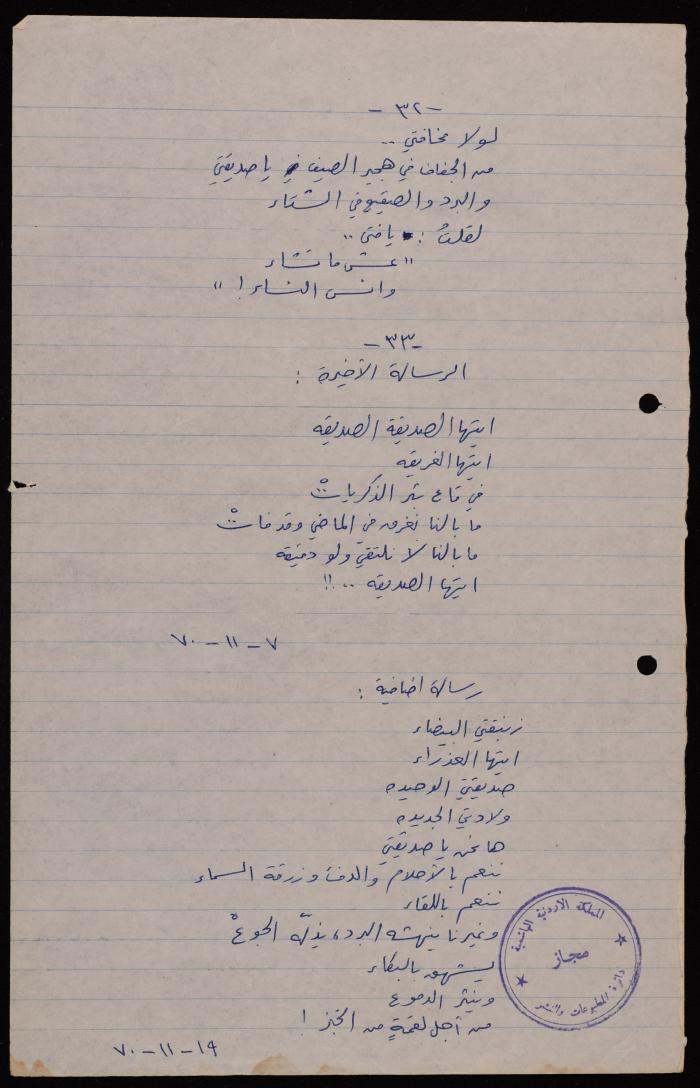 -٣٢-
لولا مخافتي ..
من الجفاف في هجير الصيف يا صديقتي
والبرد والصقيع في الشتاء
لقلتُ : يا فتى ..
"عش ما تشاء
وانس النساء ! "
-٣٣-
الرسالة الأخيرة :
ايتها الصديقة الصديقه
ايتها الغريقه
في قاع بئر الذكرياتْ ..
ما بالنا نغرق في الماضي وقد فاتْ ..
ما بالنا لا نلتقي ولو دقيقه
ايتها الصديقه ..!!
٧-١١-٧٠
رسالة اضافية :
زنبقتي البيضاء
ايتها العذراء
صديقتي الوحيده
ولادتي الجديده
ها نحن يا صديقتي
ننعم بالأحلام والدفء وزرقة السماء
ننعم باللقاء
وغيرنا ينهشه البرد، يذلّه الجوعْ
يشهق بالبكاء
وينثر الدموع
من أجل لقمةٍ من الخبز !
١٩-١١-٧٠
المملكة الاردنية الهاشمية
مجاز
دائرة المطبوعات والنشر